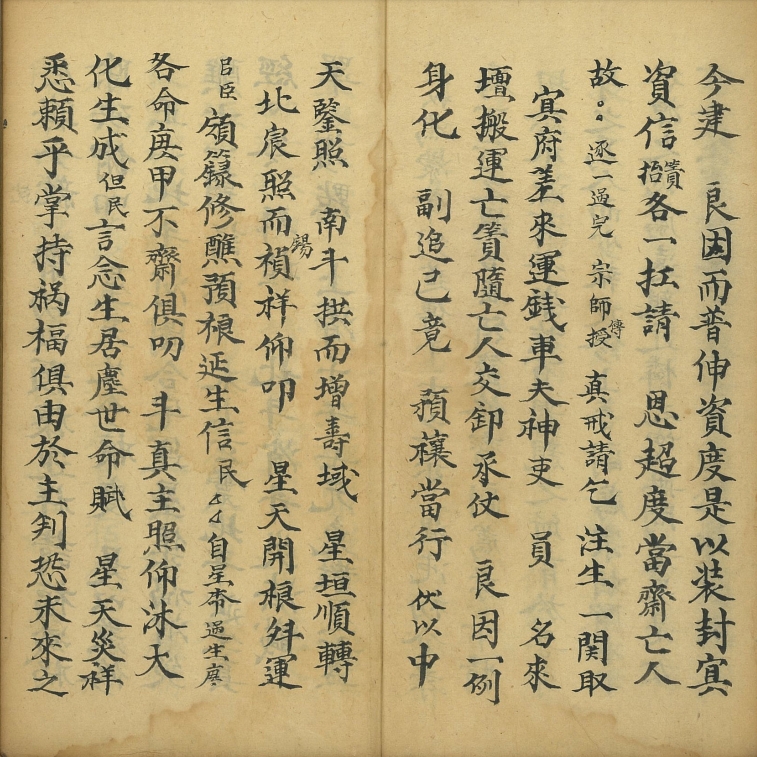 今建 良因而普伸資度是以装封㝠
資信賫抬各一扛請 恩超度當齋亡人
故：逐一過完 宗師授傳真戒請乞 注生一関取
㝠府差來運銭車夫神吏 員 名來
壇搬運亡賫隨亡人交卸承仗 良因一例
身化 副追已竟 預禳當行 伏以中
天鑒照 南斗拱而增壽域 星垣順轉
北宸照而禎祥錫仰叩 星天開根斗運
臣 領籙修醮預根延生信民厶厶自星命過生慶
各命庚甲不齋俱叨 斗真主照仰沐大
化生成但民言念生居塵世命賦 星天災祥
悉頼乎掌持禍福俱由於主判恐未來之